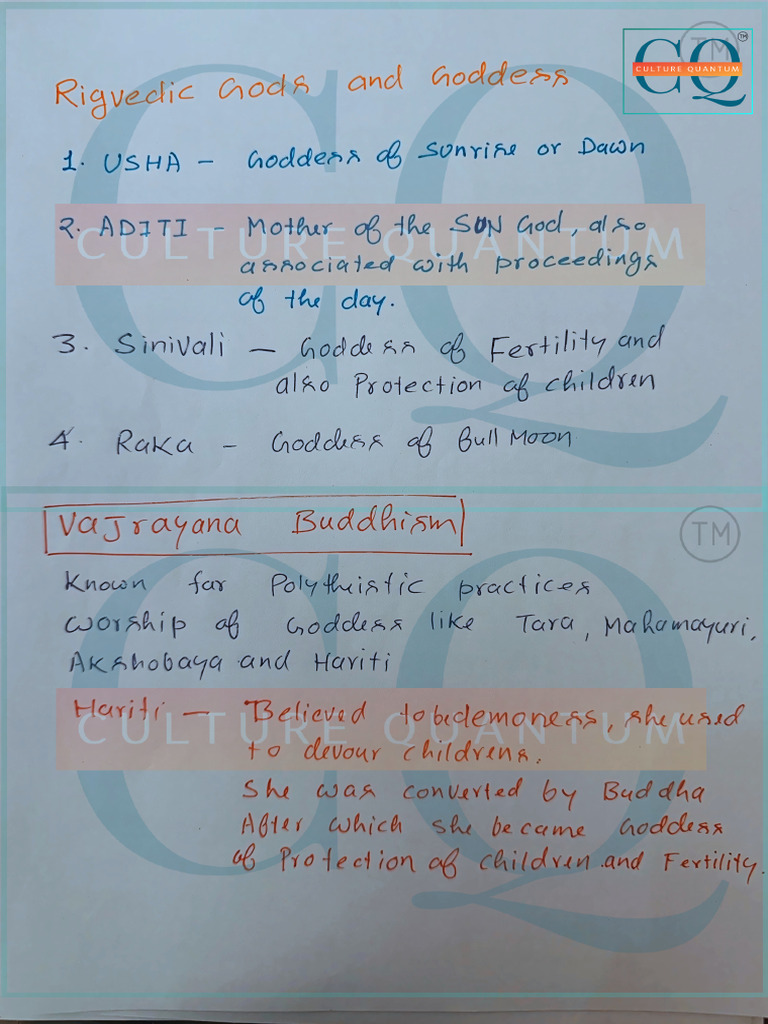 CQ TM
CULTURE QUANTUM
Rigvedic Gods and Goddess
1. USHA - Goddess of Sunrise or Dawn
2. ADITI - Mother of the SUN God, also
associated with proceedings
of the day.
CULTURE QUANTUM
3. Sinivali - Goddess of Fertility and
also Protection of children
4. Raka - Goddess of Full Moon
Vajrayana Buddhism
TM
Known for Polytheistic practices
worship of Goddess like Tara, Mahamayuri,
Akshobaya and Hariti
Hariti - Believed to be demoness, she used
to devour childrens.
CULTURE QUANTUM
She was converted by Buddha
After which she became Goddess
of Protection of children and Fertility.